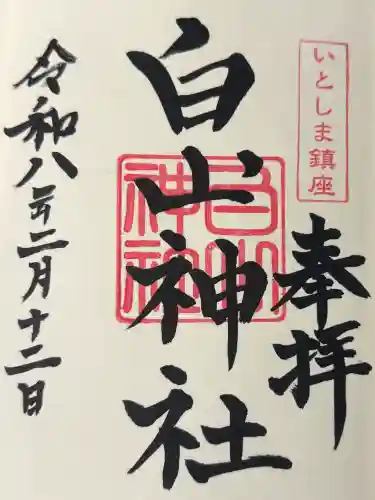 いとしま鎮座
奉拝
白山神社
白山神社
令和八年二月十二日